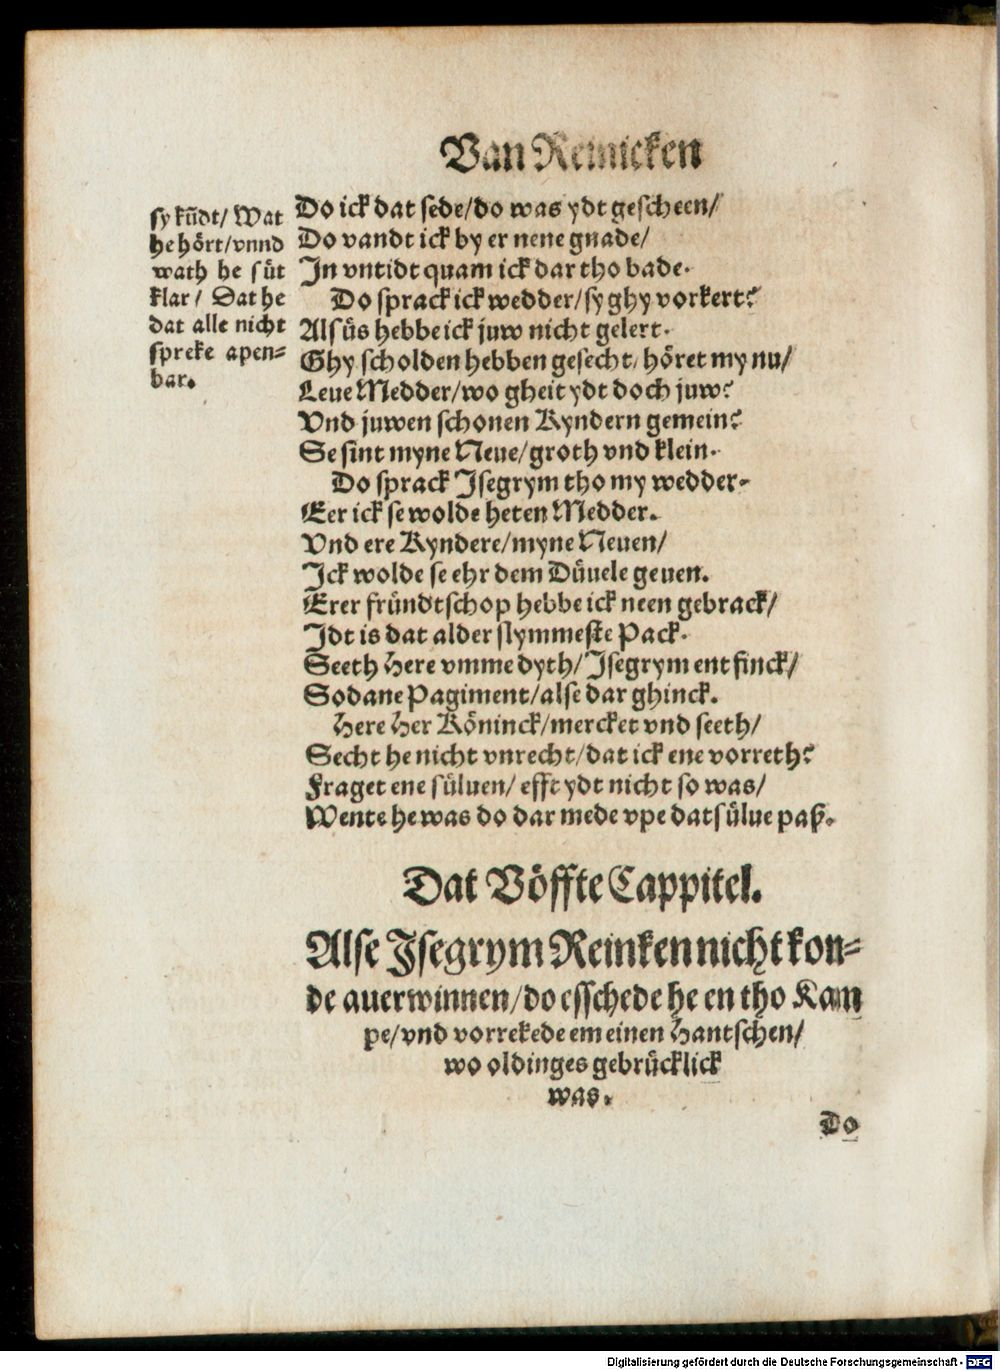 Van Reinicken
sy kündt/ Wat
he hört/vnnd
wath he süt
klar/ Dat he
dat alle nicht
spreke apen=
bar.
Do ick dat sede/do was ydt gescheen/
Do vandt ick by er nene gnade/
In vntidt quam ick dar tho bade.
Do sprack ick wedder/sy ghy vorkert?
Alsüs hebbe ick juw nicht gelert.
Ghy scholden hebben gesecht/höret my nu/
Leue Medder/wo gheit ydt doch juw?
Vnd juwen schonen Kyndern gemein?
Se sint myne Neue/groth vnd klein.
Do sprack Isegrym tho my wedder.
Eer ick se wolde heten Medder.
Vnd ere Kyndere/myne Neuen/
Ick wolde se ehr dem Düuele geuen.
Erer fründtschop hebbe ick neen gebrack/
Idt is dat alder slymmeste Pack.
Seeth Here vmme dyth/Isegrym entfinck/
Sodane Pagiment/alse dar ghinck.
Here Her Köninck/mercket vnd seeth/
Secht he nicht vnrecht/dat ick ene vorreth?
Fraget ene süluen/efft ydt nicht so was/
Wente he was do dar mede vpe datsülue paß.
Dat Vöffte Cappitel.
Alse Isegrym Reinken nicht kon=
de auerwinnen/do esschede he en tho Kam
pe/vnd vorrekede em einen Hantschen/
wo oldinges gebrücklick
was.
Do
Digitalisierung gefördert durch die Deutsche Forschungsgemeinschaft - DFG